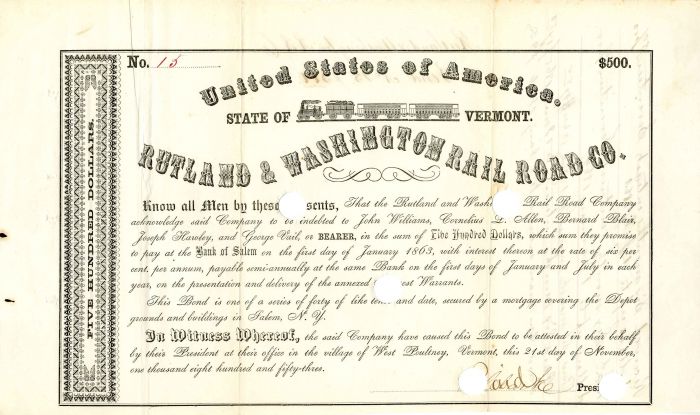 No. 15
$500.
United States of America.
STATE OF VERMONT.
RUTLAND & WASHINGTON RAIL ROAD CO.
FIVE HUNDRED DOLLARS.
Know all Men by these sents, That the Rutland and Wash Rail Road Company
acknowledge said Company to be indebted to John Williams, Cornelius L. Allen, Bernard Blair,
Joseph Hawley, and George Vail, or BEARER, in the sum of Five Hundred Dollars, which sum they promise
to pay at the Bank of Salem on the first day of January 1863, with interest thereon at the rate of six per
cent. per annum, payable semi-annually at the same Bank on the first days of January and July in each
year, on the presentation and delivery of the annexed est Warrants.
This Bond is one of a series of forty of like ten and date, secured by a mortgage covering the Depot
grounds and buildings in Salem, N. Y.
In Witness Whereof, the said Company have caused this Bond to be attested in their behalf
by their President at their office in the village of West Poultney, Vermont, this 21st day of November,
one thousand eight hundred and fifty-three.
Presi